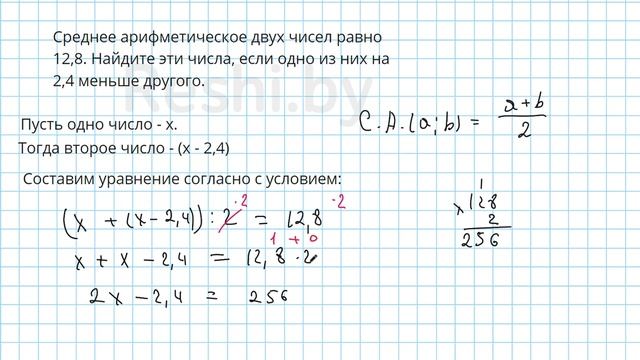 Среднее арифметическое двух чисел равно
12,8. Найдите эти числа, если одно из них на
2,4 меньше другого.
Reshi.by
C.A.(a;b) = a+b / 2
Пусть одно число - x.
Тогда второе число - (x - 2,4)
Составим уравнение согласно с условием:
·2 ·2
(x + (x - 2,4)) : 2 = 12,8
1 + 0
x + x - 2,4 = 12,8 · 2
2x - 2,4 = 256
1
x 128
2
256